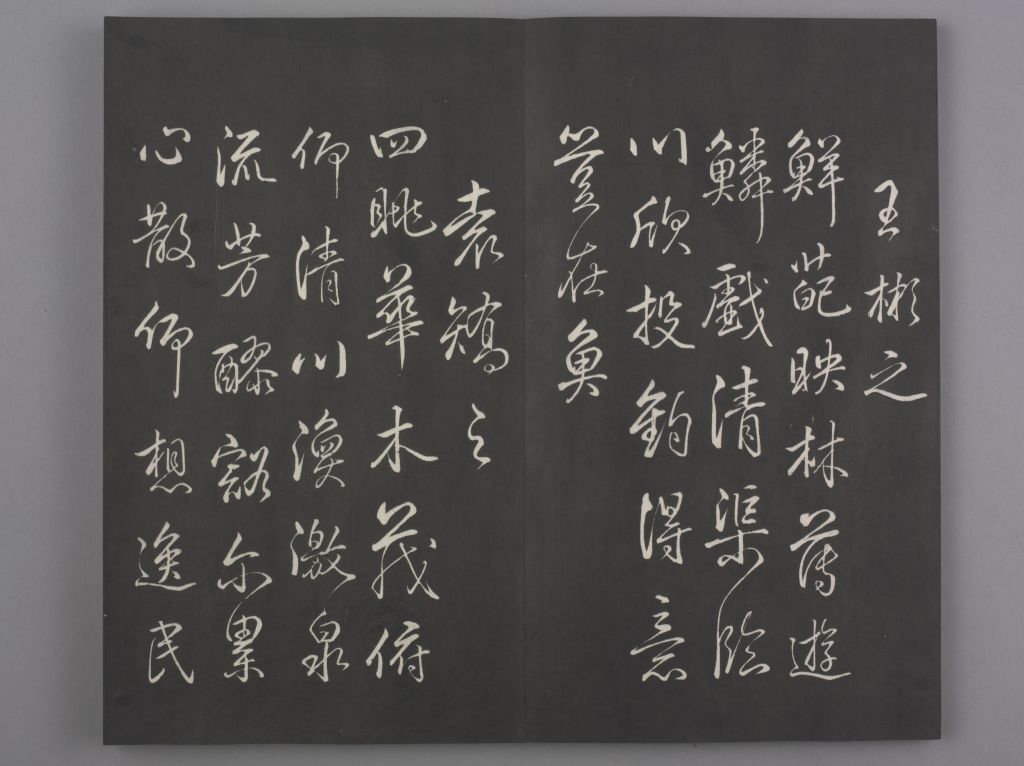 王彬之
鮮葩映林薄遊
鱗戲清渠臨
川欣投釣得意
豈在魚
袁矯之
四眺華木茂俯
仰清川渙激泉
流芳醪豁尔累
心散仰想逸民